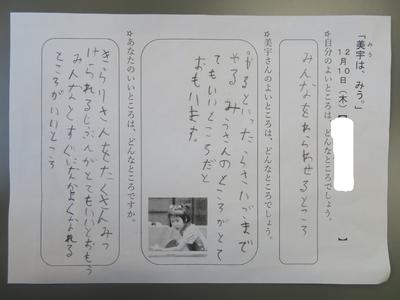 「美宇は、みう。」
みう
12月10日（木）【　】
☆自分のよいところは、どんなところでしょう。
みんなをわらわせるところ
☆美宇さんのよいところは、どんなところでしょう。
やるといったらさいごまで
やる みうさんのところがとっ
てもいいところだと
おもいます。
☆あなたのいいところは、どんなところですか。
きらりさんをたくさんみつ
けられるじぶんがとてもいいとおもう
みんなとすぐになかよくなれる
ところがいいところ